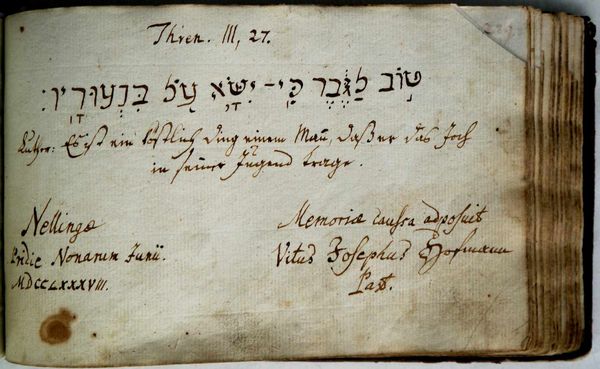 Thren. III, 27.
טוֹב לַגֶּבֶר כִּי־יִשָּׂא עֹל בִּנְעוּרָיו׃
Luther: Es ist ein köstlich Ding einem Mann, daß er das Joch
in seiner Jugend trage.
Nellingæ
Pridie Nonarum Junii.
MDCCLXXXVIII.
Memoriæ caussa adposuit
Vitus Josephus Hofmann
Past.